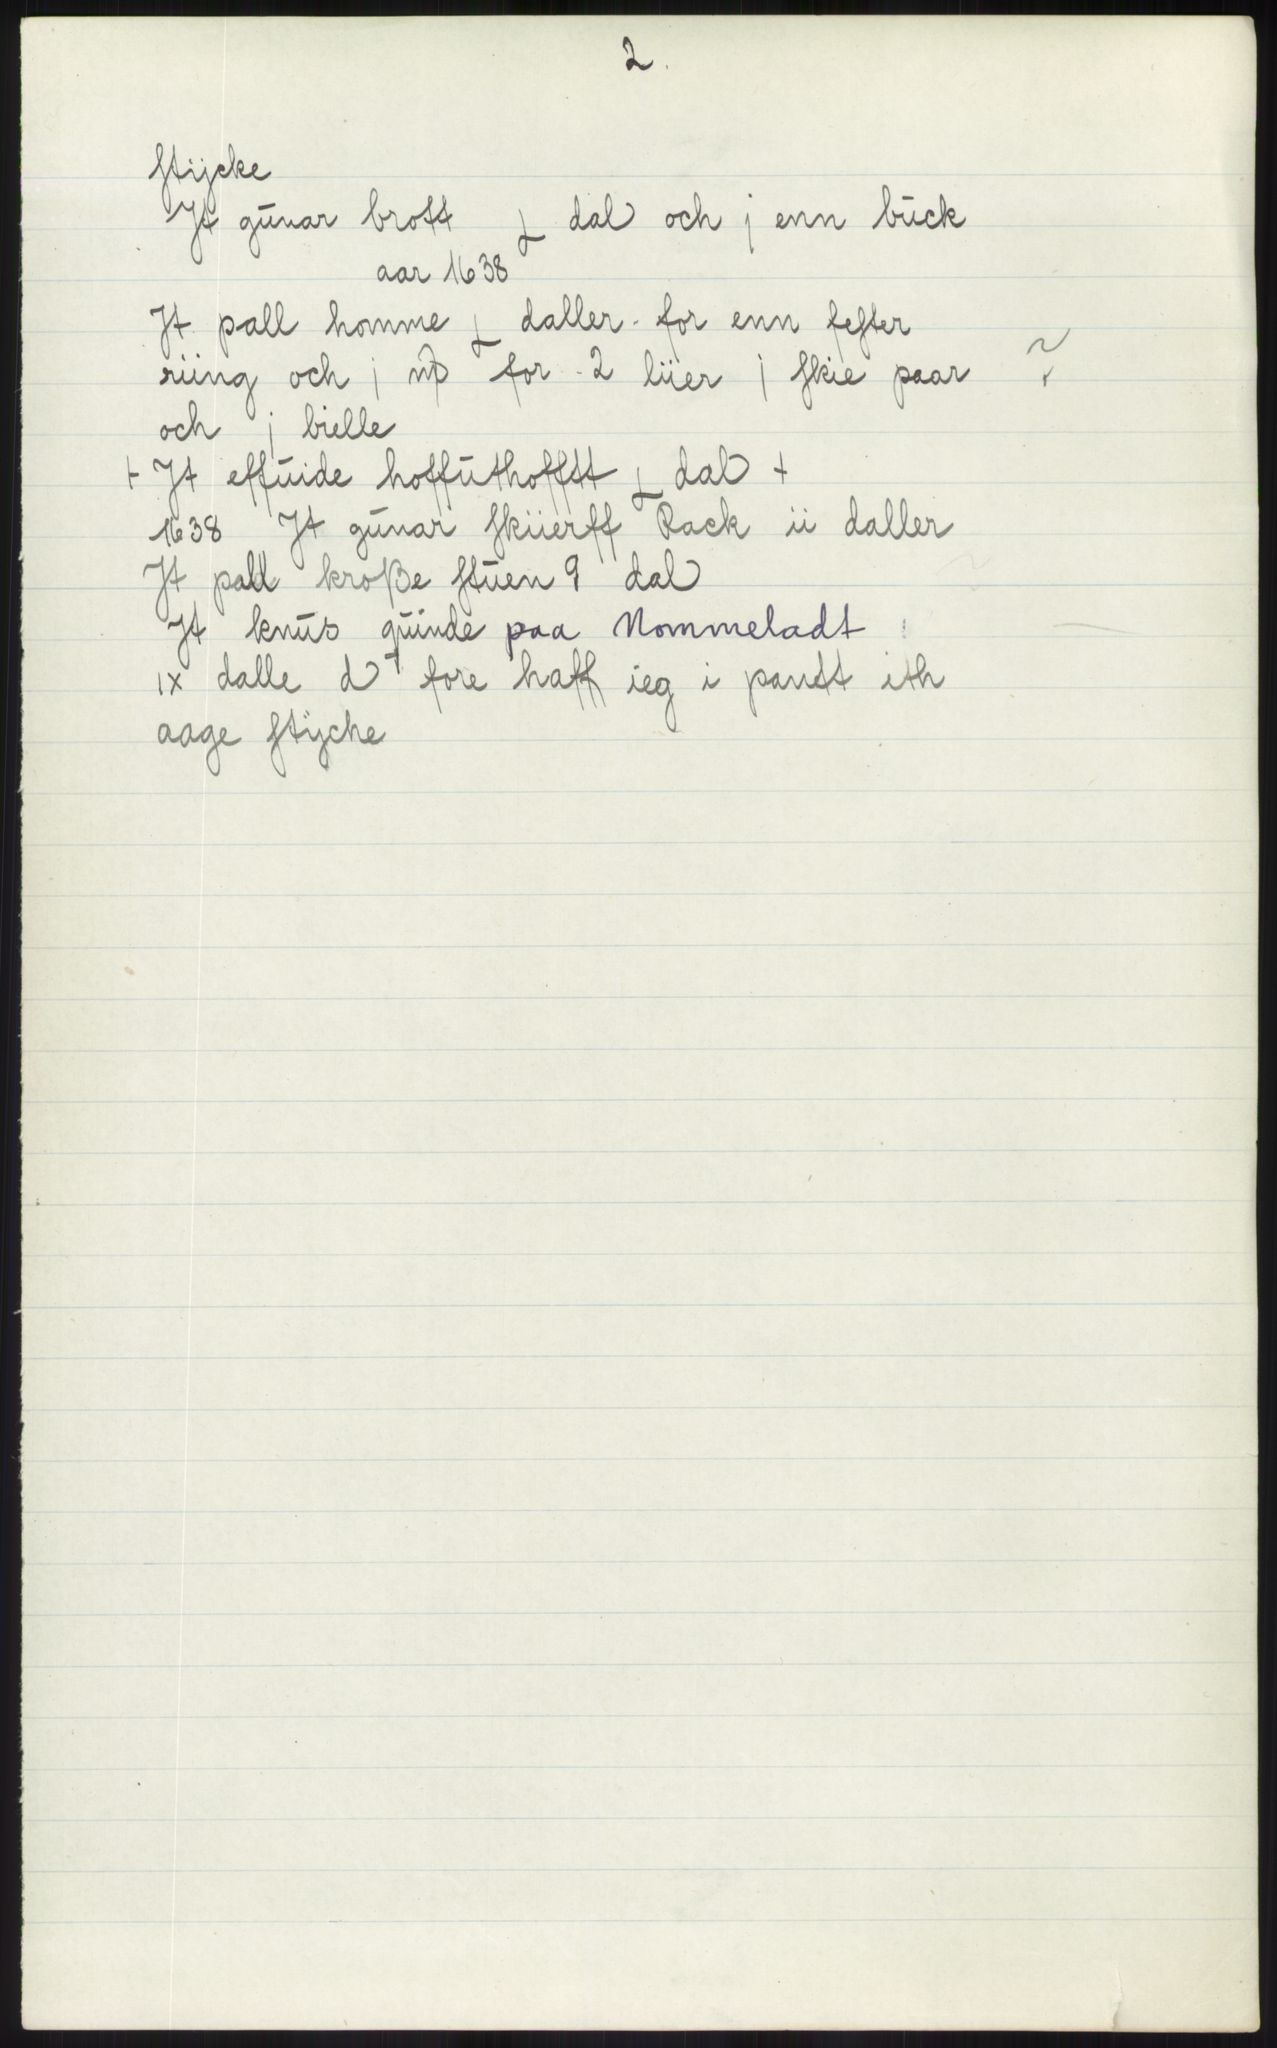 2.
ſtijcke
It gunar brott dal och j enn buck
aar 1638
It pall homme daller for enn feſter
riing och j for 2 liier j ſkie paar
och j bielle
+ It effuide hoffuthofftt dal +
1638 It gunar ſkiierff Rack ii daller
It pall kroße ſtuen 9 dal
It knus quinde paa Nommeladt
ix dalle d fore haff ieg i pantt ith
aage ſtijcke